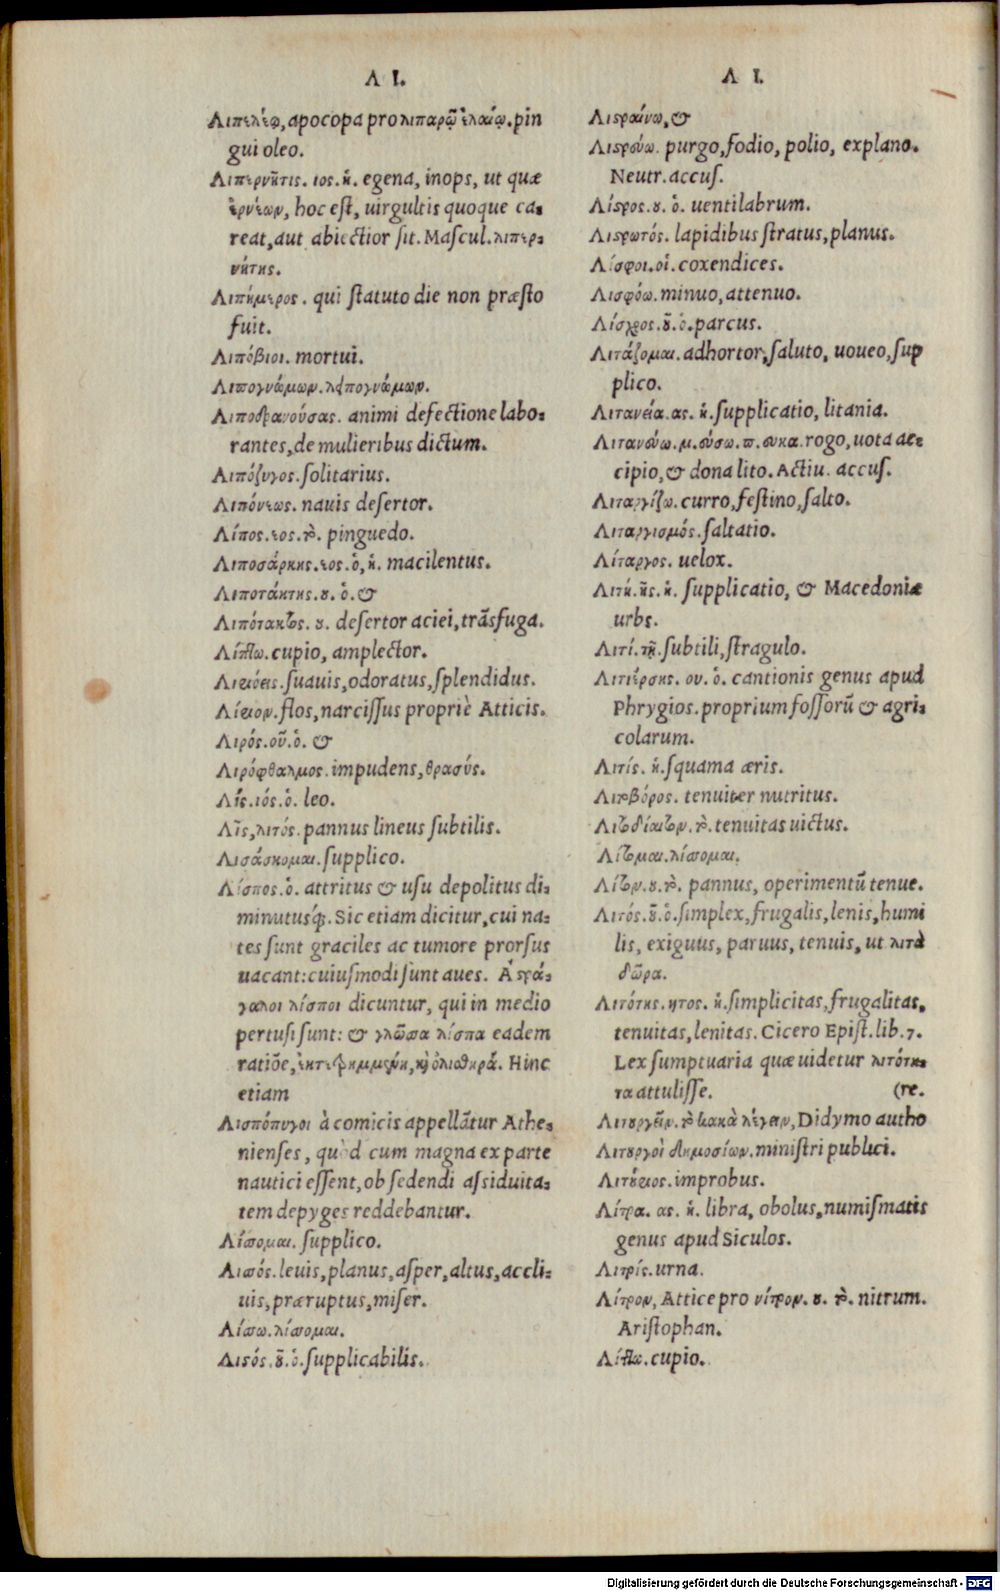 Λ Ι.
Λιπελέῳ, apocopa pro λιπαρῷ ἐλαίῳ. pin
gui oleo.
Λιπερνῆτις. ιος. ἡ. egena, inops, ut quæ
ἐρνέων, hoc est, uirgultis quoque ca-
reat, aut abiectior sit. Mascul. λιπερ-
νήτης.
Λιπήμερος. qui statuto die non præsto
fuit.
Λιπόβιοι. mortui.
Λιπογνώμων. λειπογνώμων.
Λιποδρανούσας. animi defectione labo-
rantes, de mulieribus dictum.
Λιπόζυγος. solitarius.
Λιπόνεως. nauis desertor.
Λίπος. εος. τὸ. pinguedo.
Λιποσάρκης. εος. ὁ, ἡ. macilentus.
Λιποτάκτης. ου. ὁ. &
Λιπότακτος. ου. desertor aciei, trãsfuga.
Λίπτω. cupio, amplector.
Λιριόεις. suauis, odoratus, splendidus.
Λίριον. flos, narcissus propriè Atticis.
Λιρός. οῦ. ὁ. &
Λιρόφθαλμος. impudens, θρασύς.
Λῖς. ιός. ὁ. leo.
Λῖς, λιτός. pannus lineus subtilis.
Λισάσκομαι. supplico.
Λίσπος. ὁ. attritus & usu depolitus di-
minutusq́;. Sic etiam dicitur, cui na-
tes sunt graciles ac tumore prorsus
uacant: cuiusmodi sunt aues. Ἀστρά-
γαλοι λίσποι dicuntur, qui in medio
pertusi sunt: & γλῶσσα λίσπα eadem
ratiõe, ἐκτετριμμένη, καὶ ὀλισθηρά. Hinc
etiam
Λισπόπυγοι à comicis appellãtur Athe-
nienses, quòd cum magna ex parte
nautici essent, ob sedendi assiduita-
tem depyges reddebantur.
Λίσσομαι. supplico.
Λισσός. leuis, planus, asper, altus, accli-
uis, præruptus, miser.
Λίσσω. λίσσομαι.
Λιστός. οῦ. ὁ. supplicabilis.
Λ Ι.
Λιστραίνω, &
Λιστρεύω. purgo, fodio, polio, explano.
Neutr. accus.
Λίστρος. ου. ὁ. uentilabrum.
Λιστρωτός. lapidibus stratus, planus.
Λίσφοι. οἱ. coxendices.
Λισφόω. minuo, attenuo.
Λίσχρος. οῦ. ὁ. parcus.
Λιτάζομαι. adhortor, saluto, uoueo, sup
plico.
Λιτανεία. ας. ἡ. supplicatio, litania.
Λιτανεύω. μ. εύσω. π. ευκα. rogo, uota ac-
cipio, & dona lito. Actiu. accus.
Λιταργίζω. curro, festino, salto.
Λιταργισμός. saltatio.
Λίταργος. uelox.
Λιτή. ῆς. ἡ. supplicatio, & Macedoniæ
urbs.
Λιτί. τῇ. subtili, stragulo.
Λιτιέρσης. ου. ὁ. cantionis genus apud
Phrygios. proprium fossorũ & agri-
colarum.
Λιτίς. ἡ. squama æris.
Λιτοβόρος. tenuiter nutritus.
Λιτοδίαιτον. τὸ. tenuitas uictus.
Λίτομαι. λίσσομαι.
Λίτον. ου. τὸ. pannus, operimentũ tenue.
Λιτός. οῦ. ὁ. simplex, frugalis, lenis, humi
lis, exiguus, paruus, tenuis, ut λιτὰ
δῶρα.
Λιτότης. ητος. ἡ. simplicitas, frugalitas,
tenuitas, lenitas. Cicero Epist. lib. 7.
Lex sumptuaria quæ uidetur λιτότη-
τα attulisse. (re.
Λιτουργεῖν. τὸ κακὰ λέγειν, Didymo autho
Λιτουργοὶ δημοσίων. ministri publici.
Λιτούριος. improbus.
Λίτρα. ας. ἡ. libra, obolus, numismatis
genus apud Siculos.
Λιτρίς. urna.
Λίτρον, Attice pro νίτρον. ου. τὸ. nitrum.
Aristophan.
Λίπτω. cupio.
Digitalisierung gefördert durch die Deutsche Forschungsgemeinschaft - DFG